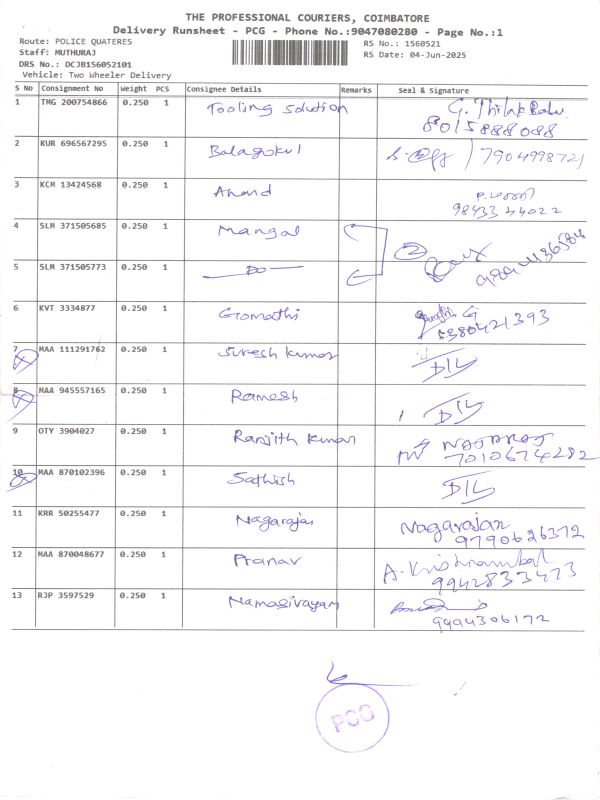 THE PROFESSIONAL COURIERS, COIMBATORE
Delivery Runsheet - PCG - Phone No.:9047080280 - Page No.:1
Route: POLICE QUATERES
RS No.: 1560521
Staff: MUTHURAJ
RS Date: 04-Jun-2025
DRS No.: DCJB156052101
Vehicle: Two Wheeler Delivery
S No Consignment No Weight PCS Consignee Details Remarks Seal & Signature
1 TMG 200754866 0.250 1 Tooling Solution G. Thilak Babu
8015888088
2 KUR 696567295 0.250 1 Balagokul 7904998721
3 KCM 13424568 0.250 1 Anand
98433 44022
4 SLM 371505685 0.250 1 Mangal 2
5 SLM 371505773 0.250 1 DO
6 KVT 3334877 0.250 1 Gomathi G
7 MAA 111291762 0.250 1 Suresh Kumar D/L
8 MAA 945557165 0.250 1 Ramesh D/L
9 OTY 3904027 0.250 1 Ranjith Kumar NAGARAJ
7010674282
10 MAA 870102396 0.250 1 Sathish D/L
11 KRR 50255477 0.250 1 Nagarajan Nagarajan
9790626372
12 MAA 870048677 0.250 1 Pranav A. Krishnambal
9942833473
13 RJP 3597529 0.250 1 Namasivayam
9494306172
PCG